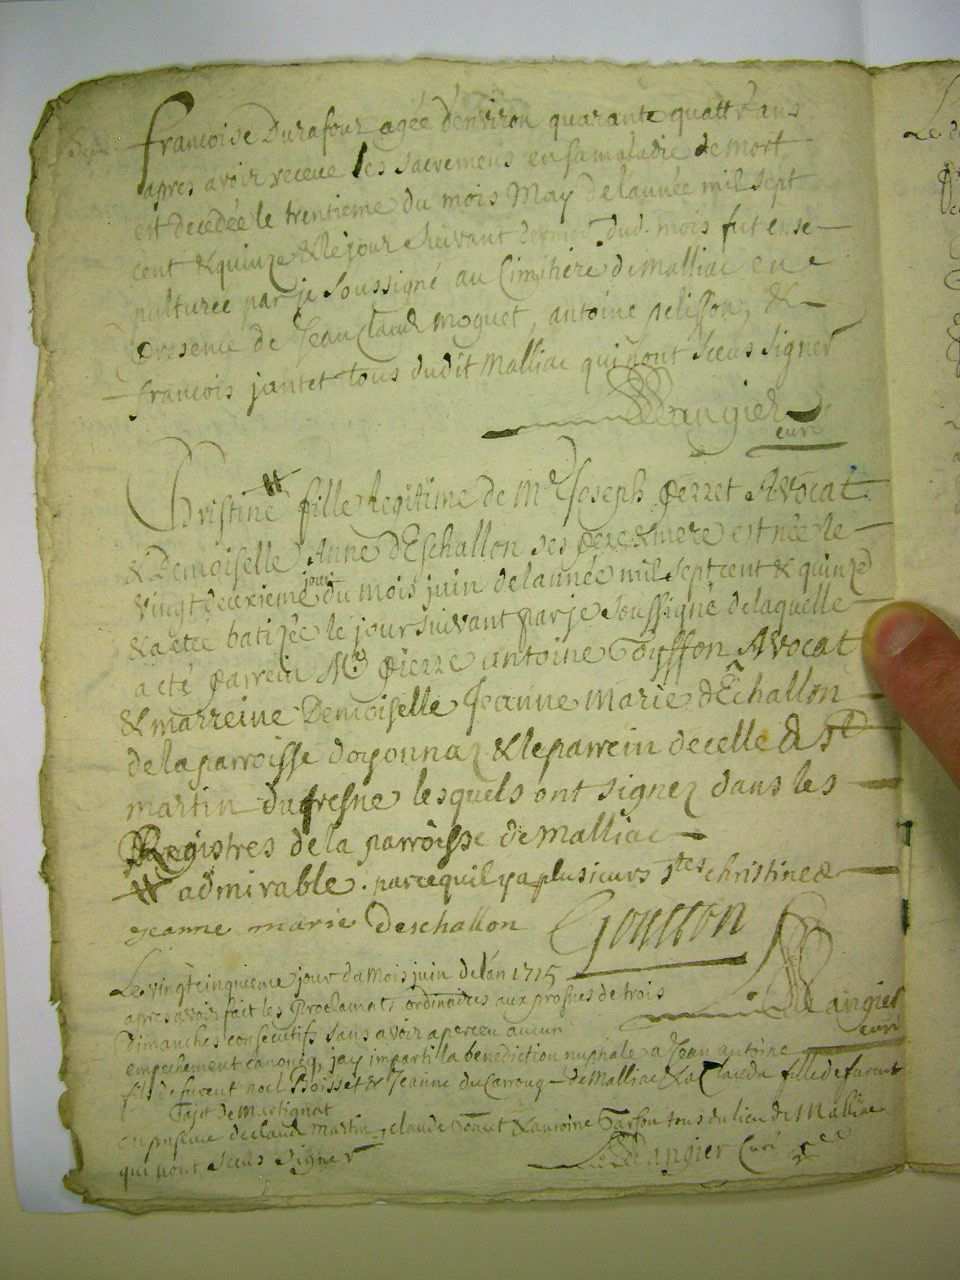 francoise Durafour agée d'environ quarante quattr ans
apres avoir receue les sacremens en sa maladie de mort
est decedée le trentieme du mois May de l'année mil sept
cent & quinze & le jour suivant dud. mois fut ense-
pulturee par je soussigné au Cimitiere de Malliac en
presence de Jean Claude moguet, antoine pelisson, &
francois jantet tous dudit Malliac qui n'ont sceus signer
Mangier
curé
Christine # fille legitime de Mr. Joseph Perret Avocat
& Demoiselle Anne d'Eschallon ses pere & mere est née le
vingt deuxieme jour du mois juin de l'année mil sept cent & quinze
& a etée batizée le jour suivant par je soussigné de laquelle
a eté parrein Mr. Pierre antoine Goiffon Avocat
& marreine Demoiselle Jeanne marie d'Echallon
de la parroisse d'oyonnaz & le parrein de celle de St
martin du fresne lesquels ont signez dans les
Registres de la parroisse de Malliac
# admirable. parcequil y a plusieurs stes christine &
jeanne marie Deschallon Gouffon
Le vingt cinquieme jour du mois juin de l'an 1715
apres avoir fait les Proclamat. ordinaires aux prosnes de trois
Mangier
curé
Dimanches consecutifs sans avoir aperceu aucun
empechement canoniq, jay imparti la benediction nuptiale a Jean antoine
fils de furent noel Boisset & Jeanne du Carrouq de Malliac & a Clauda fille de furent
de Martignat
en presence de claud martin, claude & antoine tous du lieu de Malliac
qui n'ont sceus signer Mangier Curé